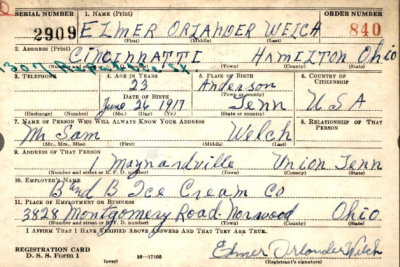 SERIAL NUMBER 1. NAME (Print) ORDER NUMBER
2909 ELMER ORLANDER WELCH 840
(First) (Middle) (Last)
2. ADDRESS (Print)
CINCINNATTE HAMILTON Ohio
(Number and street or R. F. D. number) (Town) (County) (State)
307
3. TELEPHONE 4. AGE IN YEARS 5. PLACE OF BIRTH 6. COUNTRY OF CITIZENSHIP
23 Anderson
DATE OF BIRTH (Town or county)
June 26 1917 Tenn U.S.A
(Exchange) (Number) (Mo.) (Day) (Yr.) (State or country)
7. NAME OF PERSON WHO WILL ALWAYS KNOW YOUR ADDRESS 8. RELATIONSHIP OF THAT PERSON
Mr Sam Welch
(Mr., Mrs., Miss) (First) (Middle) (Last)
9. ADDRESS OF THAT PERSON
Maynardville Union Tenn
(Number and street or R. F. D. number) (Town) (County) (State)
10. EMPLOYER'S NAME
B and B Ice Cream Co
11. PLACE OF EMPLOYMENT OR BUSINESS
3828 Montgomery Road-Norwood Ohio
(Number and street or R. F. D. number) (Town) (County) (State)
I AFFIRM THAT I HAVE VERIFIED ABOVE ANSWERS AND THAT THEY ARE TRUE.
REGISTRATION CARD
D. S. S. Form 1 (over) 16—17105 Elmer Orlander Welch
(Registrant's signature)